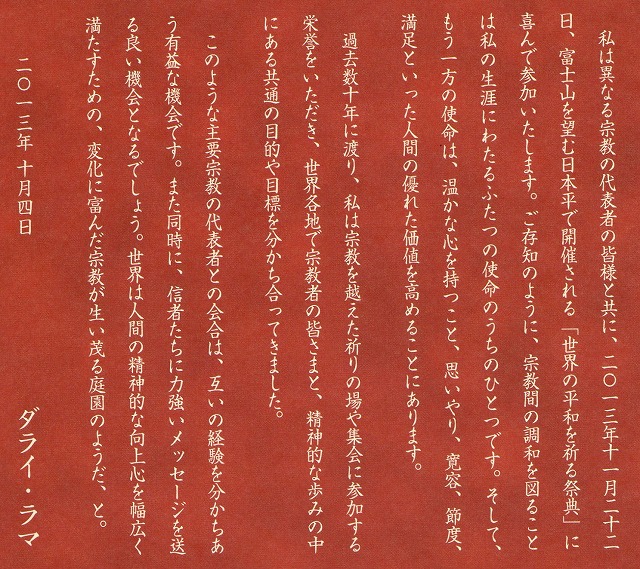 私は異なる宗教の代表者の皆様と共に、二〇一三年十一月二十二
日、富士山を望む日本平で開催される「世界の平和を祈る祭典」に
喜んで参加いたします。ご存知のように、宗教間の調和を図ること
は私の生涯にわたるふたつの使命のうちのひとつです。そして、
もう一方の使命は、温かな心を持つこと、思いやり、寛容、節度、
満足といった人間の優れた価値を高めることにあります。
過去数十年に渡り、私は宗教を越えた祈りの場や集会に参加する
栄誉をいただき、世界各地で宗教者の皆さまと、精神的な歩みの中
にある共通の目的や目標を分かち合ってきました。
このような主要宗教の代表者との会合は、互いの経験を分かちあ
う有益な機会です。また同時に、信者たちに力強いメッセージを送
る良い機会となるでしょう。世界は人間の精神的な向上心を幅広く
満たすための、変化に富んだ宗教が生い茂る庭園のようだ、と。
二〇一三年 十月四日
ダライ・ラマ